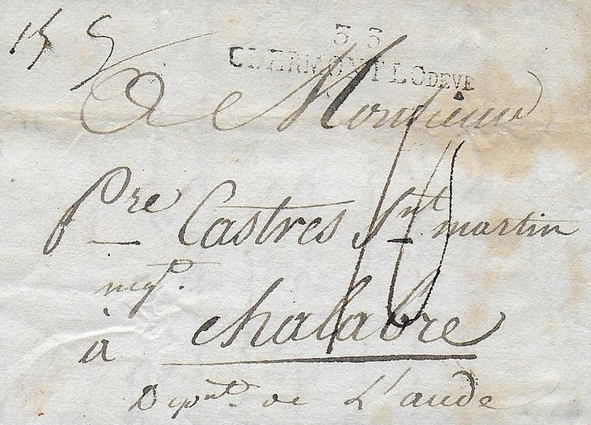 33
CLERMONT LODEVE
A Monsieur
Pre Castres St martin
negt.
à chalabre
Depnt. de L'aude